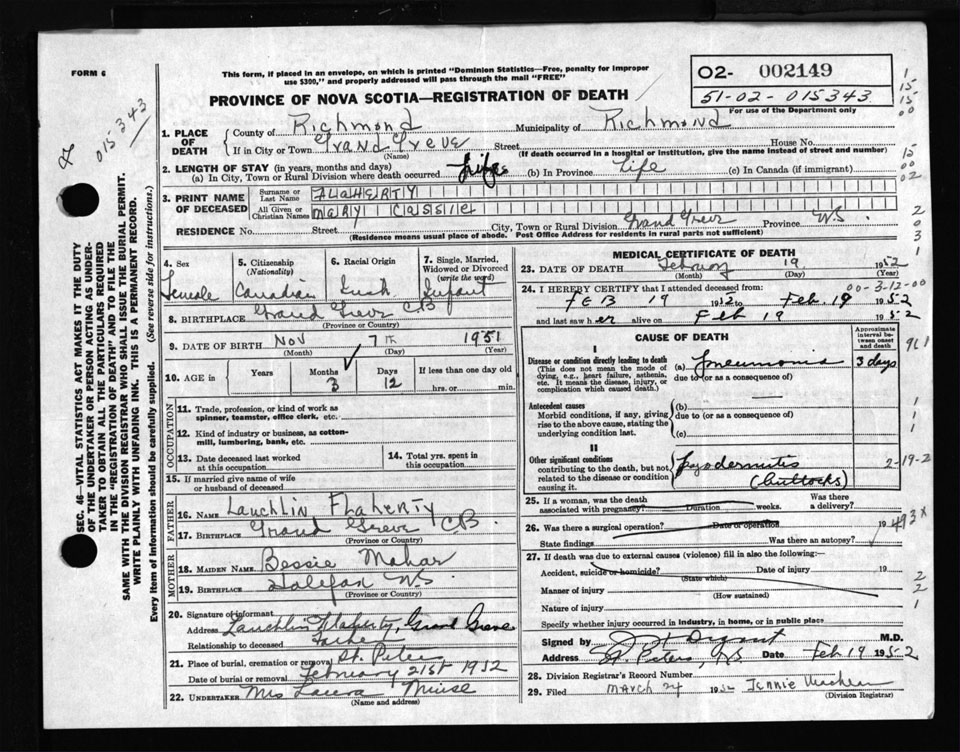 FORM 6
This form, if placed in an envelope, on which is printed "Dominion Statistics—Free, penalty for improper
use $300," and properly addressed will pass through the mail "FREE"
PROVINCE OF NOVA SCOTIA—REGISTRATION OF DEATH
02- 002149
51-02-015343
For use of the Department only
015343
1. PLACE OF DEATH
County of Richmond Municipality of Richmond
If in City or Town Grand Greve Street House No.
(Name) (If death occurred in a hospital or institution, give the name instead of street and number)
2. LENGTH OF STAY (in years, months and days)
(a) In City, Town or Rural Division where death occurred Life (b) In Province Life (c) In Canada (if immigrant)
3. PRINT NAME OF DECEASED
Surname or Last Name FLAHERTY
All Given or Christian Names MARY CASSIE
RESIDENCE No. Street City, Town or Rural Division Grand Greve Province N.S.
(Residence means usual place of abode. Post Office Address for residents in rural parts not sufficient)
4. Sex Female
5. Citizenship (Nationality) Canadian
6. Racial Origin Irish
7. Single, Married, Widowed or Divorced (write the word) Infant
8. BIRTHPLACE Grand Greve CB
(Province or Country)
9. DATE OF BIRTH Nov 7th 1951
(Month) (Day) (Year)
10. AGE in Years Months 3 Days 12 If less than one day old hrs. or min.
OCCUPATION
11. Trade, profession, or kind of work as spinner, teamster, office clerk, etc.
12. Kind of industry or business, as cotton-mill, lumbering, bank, etc.
13. Date deceased last worked at this occupation
14. Total yrs. spent in this occupation
15. If married give name of wife or husband of deceased
FATHER
16. NAME Lauchlin Flaherty
17. BIRTHPLACE Grand Greve CB
(Province or Country)
MOTHER
18. MAIDEN NAME Bessie Mahar
19. BIRTHPLACE Halifax N.S.
(Province or Country)
20. Signature of informant
Address Lauchlin Flaherty, Grand Greve
Relationship to deceased Father
21. Place of burial, cremation or removal St. Peters
Date of burial or removal February 21st 1952
22. UNDERTAKER Mrs Laura
(Name and address)
MEDICAL CERTIFICATE OF DEATH
23. DATE OF DEATH February 19 1952
(Month) (Day) (Year)
00-3-12-00
24. I HEREBY CERTIFY that I attended deceased from:
FEB 19 1952 to Feb. 19 1952
and last saw her alive on Feb 19 1952
CAUSE OF DEATH
Approximate interval between onset and death
I
Disease or condition directly leading to death
(This does not mean the mode of dying, e.g., heart failure, asthenia, etc. It means the disease, injury, or complication which caused death.)
(a) Pneumonia 3 days
due to (or as a consequence of)
Antecedent causes
Morbid conditions, if any, giving rise to the above cause, stating the underlying condition last.
(b)
due to (or as a consequence of)
(c)
II
Other significant conditions contributing to the death, but not related to the disease or condition causing it.
(buttocks)
2-19-2
25. If a woman, was the death associated with pregnancy? Duration weeks. Was there a delivery?
26. Was there a surgical operation? Date of operation 19
State findings Was there an autopsy?
493x
27. If death was due to external causes (violence) fill in also the following:—
Accident, suicide or homicide? Date of injury 19
(State which)
Manner of injury
(How sustained)
Nature of injury
Specify whether injury occurred in industry, in home, or in public place
Signed by M.D.
Address St. Peters, NS Date Feb 19 1952
28. Division Registrar's Record Number
29. Filed March 24 1952 Jennie
(Division Registrar)
SEC. 46—VITAL STATISTICS ACT MAKES IT THE DUTY
OF THE UNDERTAKER OR PERSON ACTING AS UNDERTAKER
TO OBTAIN ALL THE PARTICULARS REQUIRED
IN THE "REGISTRATION OF DEATH" AND TO FILE THE
SAME WITH THE DIVISION REGISTRAR WHO SHALL ISSUE THE BURIAL PERMIT.
WRITE PLAINLY WITH UNFADING INK. THIS IS A PERMANENT RECORD.
Every item of information should be carefully supplied. (See reverse side for instructions.)